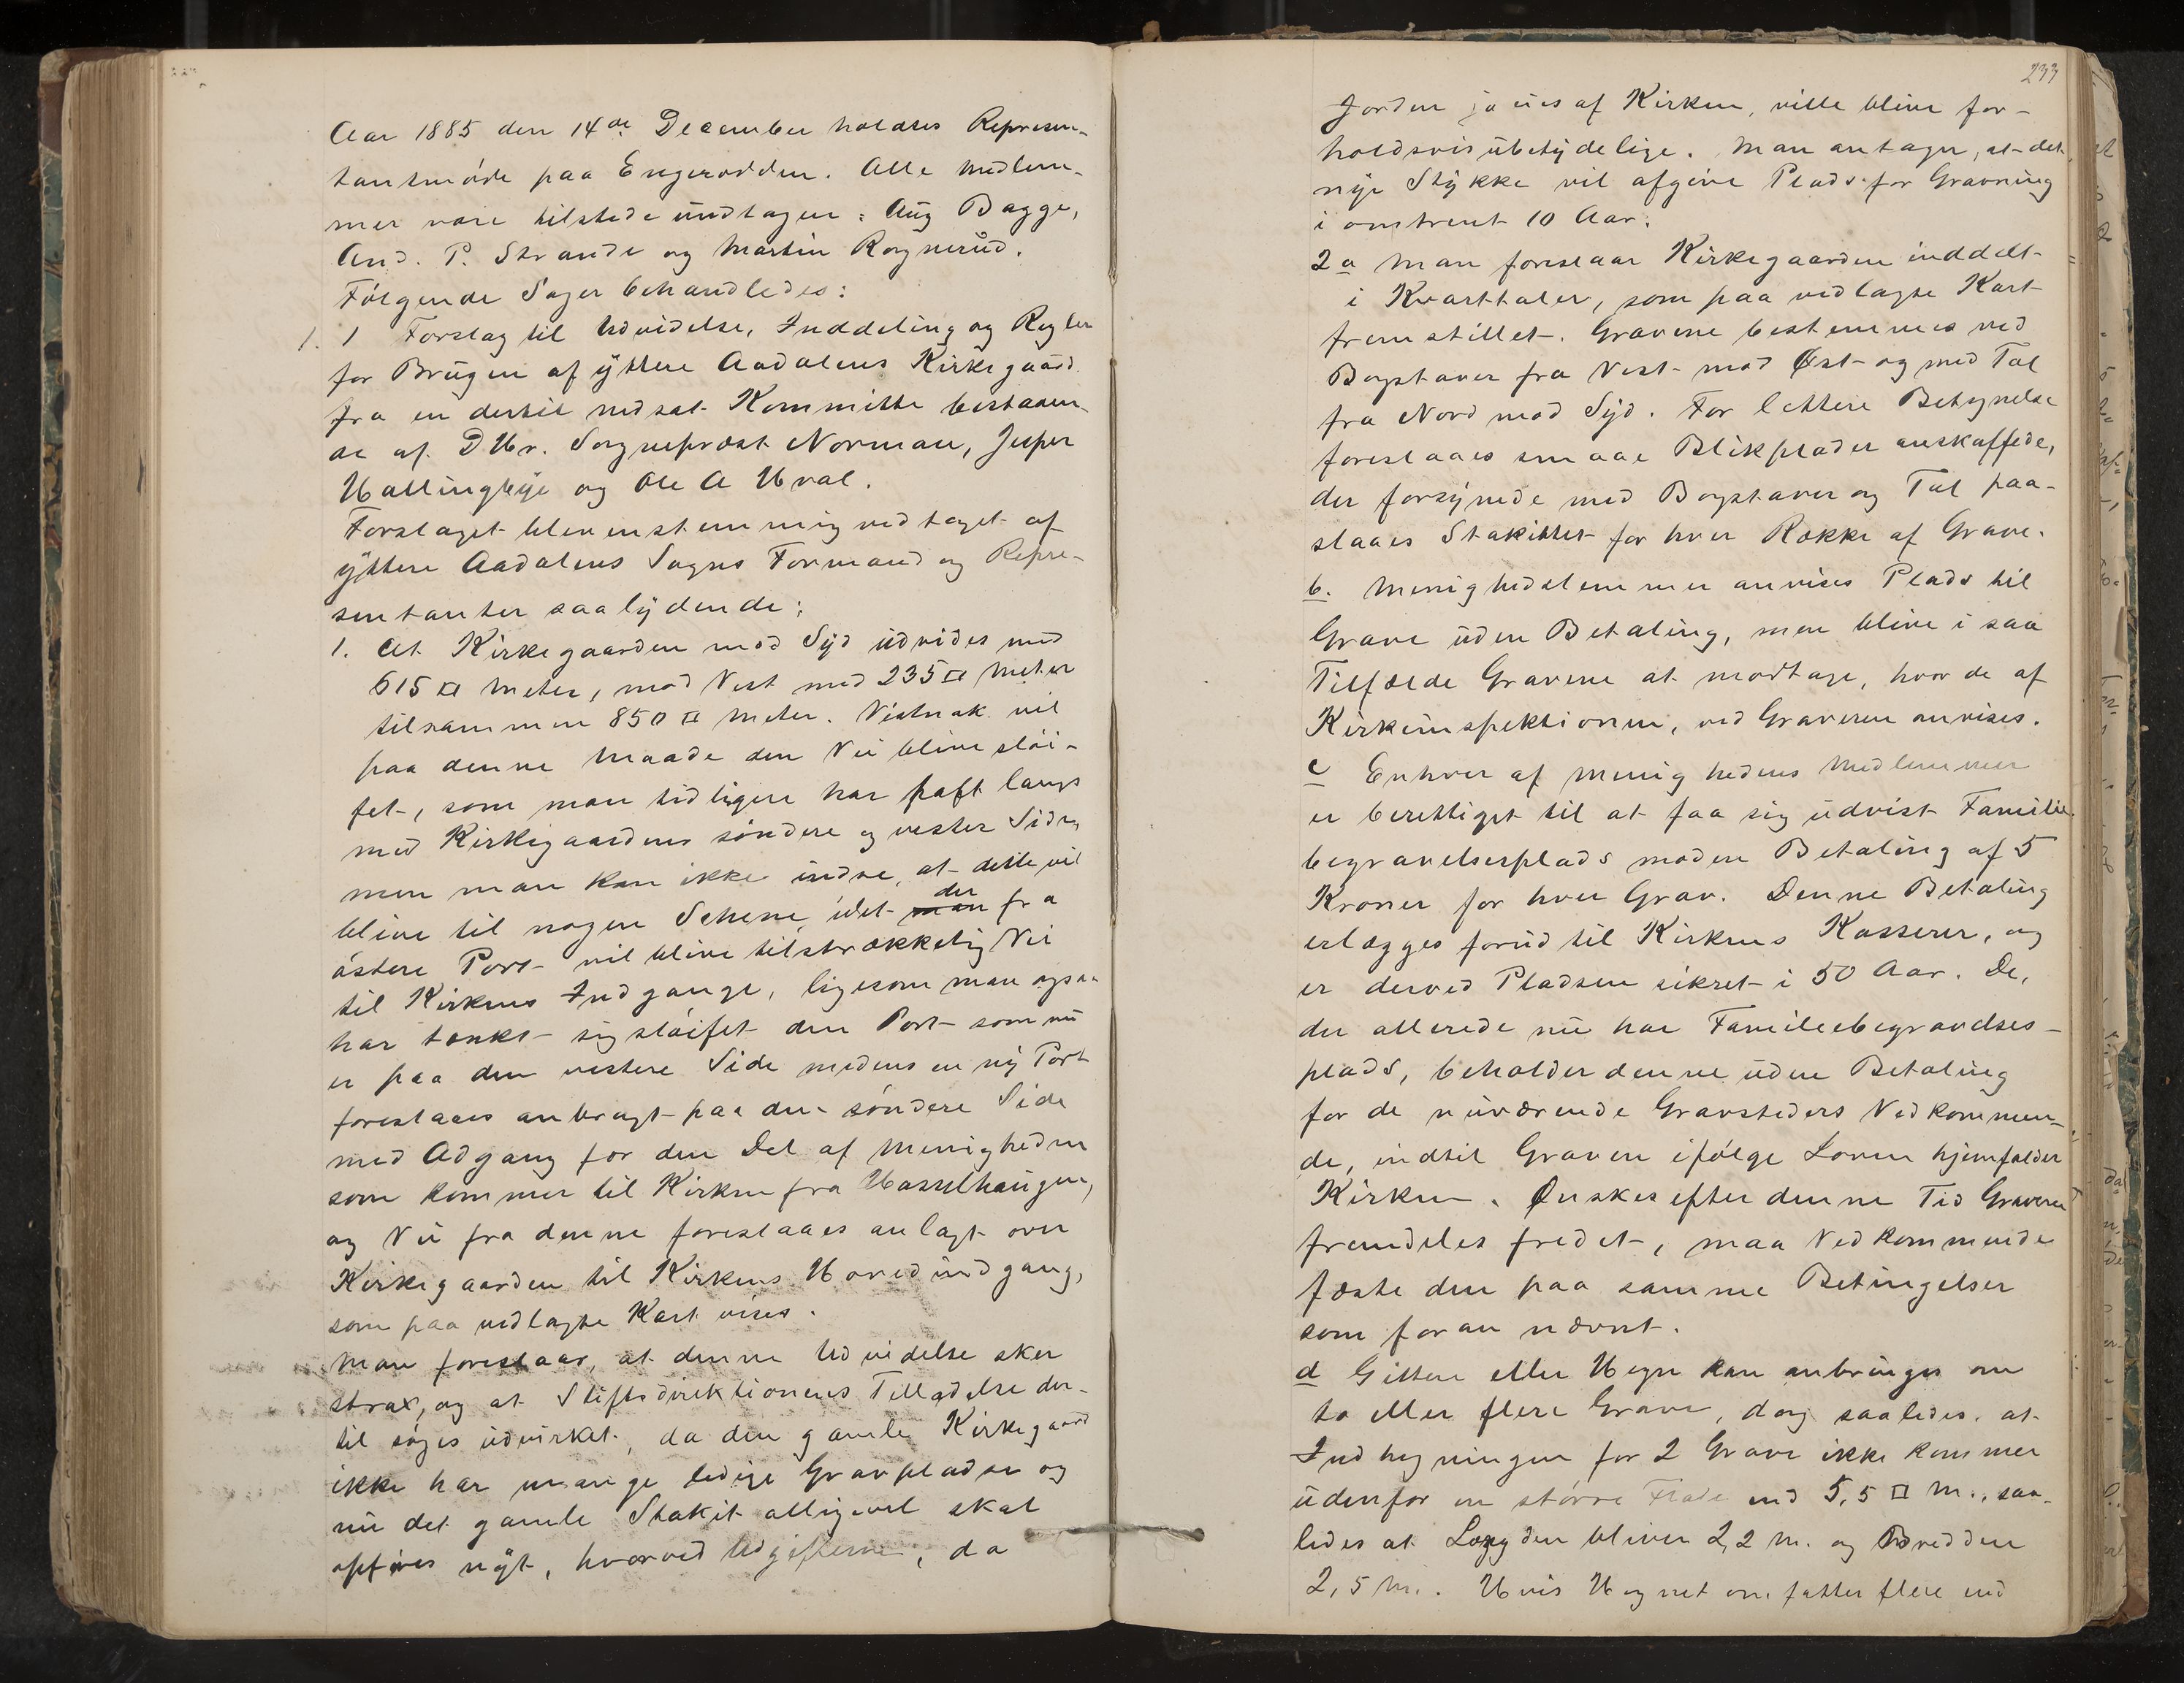 Aar 1885 den 14de December holdtes Represen-
tantmøde paa Engerodden. Alle Medlem-
mer vare tilstede undtagen: Aug Bagge,
And. P. Strande og Martin Rognerud.
Følgende Sager behandledes:
1. 1 Forslag til Udvidelse, Inddeling og Regler
for Brugen af yttere Aadalens Kirkegaard
fra en dertil nedsat Kommitte bestaaen-
de af DHr. Sogneprest Norman, Jesper
Hallingbye og Ole A Hval.
Forslaget blev enstemmig vedtaget af
yttere Aadalens Sogns Formand og Repre-
sentanter saalydende:
1. At Kirkegaarden mod Syd udvides med
615 □ Meter, mod Vest med 235 □ Meter
tilsammen 850 □ Meter. Vistnok vil
paa denne Maade den Vei blive sløi-
fet, som man tidligere har haft langs
med Kirkegaardens søndere og vester Side,
men man kan ikke indse, at dette vil
blive til nogen Schene, idet man der fra
østere Port vil blive tilstrækkelig Vei
til Kirkens Indgange, ligesom man ogsaa
har tænkt sig sløifet den Port som nu
er paa den vestere Side medens en ny Port
foreslaaes anbragt paa den søndere Side
med Adgang for den Del af Menigheden
som kommer til Kirken fra Hasselhaugen,
og Vei fra denne foreslaaes anlagt over
Kirkegaarden til Kirkens Hovedindgang,
som paa vedlagte Kart vises.
Man foreslaar, at denne Udvidelse sker
strax, og at Stiftsdirektionens Tilladelse der-
til søges udvirket, da den gamle Kirkegaard
ikke har mange ledige Gravpladse og
nu det gamle Stakit alligevel skal
opføres nyt, hvorved Udgifterne, da
233
Jorden jo eies af Kirken, ville blive for-
holdsvis ubetydelige. Man antager, at det
nye Stykke vil afgive Plads for Gravning
i omtrent 10 Aar.
2 a Man foreslaar Kirkegaarden inddelt
i Kvarttaler, som paa vedlagte Kart
fremstillet. Gravene bestemmes ved
Bogstaver fra Vest mod Øst og med Tal
fra Nord mod Syd. For lettere Betegnelse
foreslaaes smaae Blikplader anskaffede,
der forsynede med Bogstaver og Tal paa-
slaaes Stakittet for hver Række af Grave.
b. Menighedslemmer anvises Plads til
Grave uden Betaling, men blive i saa
Tilfælde Gravene at modtage, hvor de af
Kirkeinspektionen, ved Graveren anvises.
c Enhver af Menighedens Medlemmer
er berettiget til at faa sig udvist Familie-
begravelsesplads mod en Betaling af 5
Kroner for hver Grav. Denne Betaling
erlægges forud til Kirkens Kasserer, og
er derved Pladsen sikret i 50 Aar. De,
der allerede nu har Familiebegravelses-
plads, beholder denne uden Betaling
for de nuværende Gravsteders Vedkommen-
de, indtil Graven ifølge Loven hjemfalder
Kirken. Ønskes efter denne Tid Graven
fremdeles fredet, maa Vedkommende
fæste den paa samme Betingelser
som foran nævnt.
d Gittere eller Hegn kan anbringes om
to eller flere Grave, dog saaledes, at
Indhegningen for 2 Grave ikke kommer
udenfor en større Flade end 5,5 □ M., saa-
ledes at Længden bliver 2,2 M. og Bredden
2,5 M. Hvis Hegnet omfatter flere end